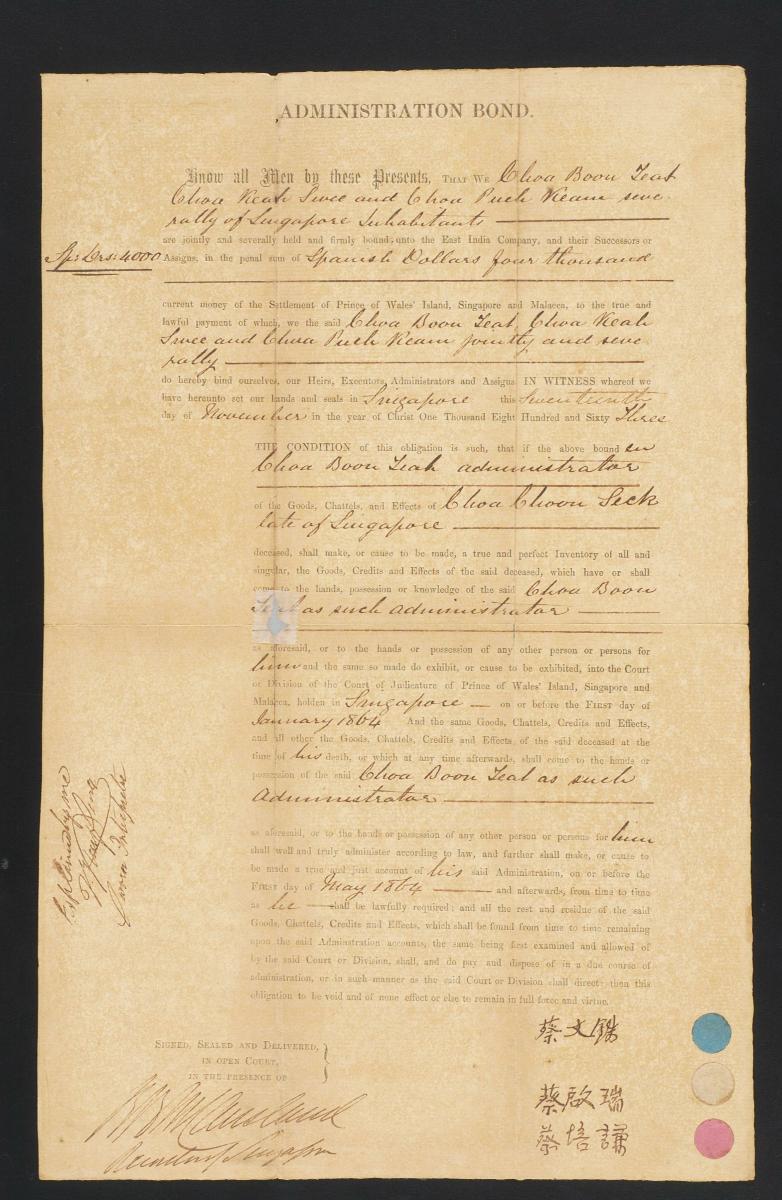 ADMINISTRATION BOND.
Know all Men by these Presents, THAT WE Choa Boon Teat
Choa Keah Swee and Choa Puch Keam seve
rally of Singapore Inhabitants
are jointly and severally held and firmly bound unto the East India Company, and their Successors or
Sp: Drs: 4000 Assigns, in the penal sum of Spanish Dollars four thousand
current money of the Settlement of Prince of Wales' Island, Singapore and Malacca, to the true and
lawful payment of which, we the said Choa Boon Teat, Choa Keah
Swee and Choa Puch Keam jointly and seve
rally
do hereby bind ourselves, our Heirs, Executors, Administrators and Assigns IN WITNESS whereof we
have hereunto set our hands and seals in Singapore this Seventeenth
day of November in the year of Christ One Thousand Eight Hundred and Sixty Three
THE CONDITION of this obligation is such, that if the above bound en
Choa Boon Teah administrator
of the Goods, Chattels, and Effects of Choa Choon Seck
late of Singapore
deceased, shall make, or cause to be made, a true and perfect Inventory of all and
singular, the Goods, Credits and Effects of the said deceased, which have or shall
come to the hands, possession or knowledge of the said Choa Boon
Teat as such administrator
as aforesaid, or to the hands or possession of any other person or persons for
him and the same so made do exhibit, or cause to be exhibited, into the Court
or Division of the Court of Judicature of Prince of Wales' Island, Singapore and
Malacca, holden in Singapore on or before the FIRST day of
January 1864 And the same Goods, Chattels, Credits and Effects,
and all other the Goods, Chattels, Credits and Effects, of the said deceased at the
time of his death, or which at any time afterwards, shall come to the hands or
possession of the said Choa Boon Teat as such
Administrator
as aforesaid, or to the hands or possession of any other person or persons for him
shall well and truly administer according to law, and further shall make, or cause to
be made a true and just account of his said Administration, on or before the
FIRST day of May 1864 and afterwards, from time to time
as he shall be lawfully required; and all the rest and residue of the said
Goods, Chattels, Credits and Effects, which shall be found from time to time remaining
upon the said Adminstration accounts, the same being first examined and allowed of
by the said Court or Division, shall, and do pay and dispose of in a due course of
administration, or in such manner as the said Court or Division shall direct: then this
obligation to be void and of none effect or else to remain in full force and virtue.
Explained by me
蔡文
SIGNED, SEALED AND DELIVERED,
IN OPEN COURT,
IN THE PRESENCE OF
蔡啟瑞
蔡培謙
Singapore